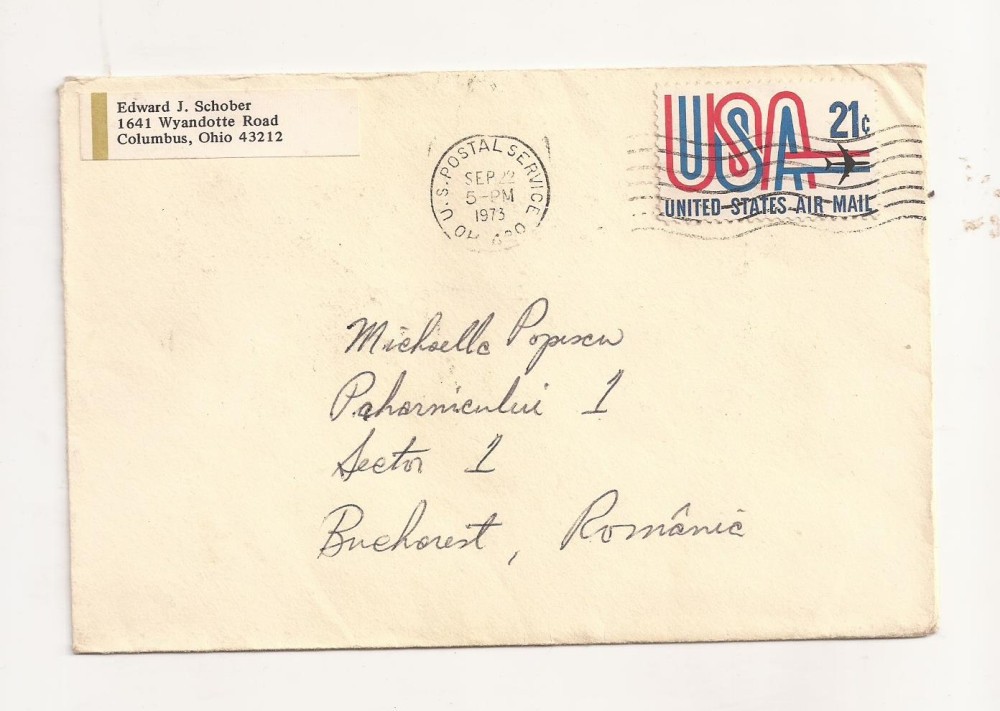 Edward J. Schober
1641 Wyandotte Road
Columbus, Ohio 43212
U.S. POSTAL SERVICE
SEP 22
5-PM
1973
USA 21¢
UNITED STATES AIR MAIL
Michaella Popescu
Paharnicului 1
Sector 1
Bucharest, România